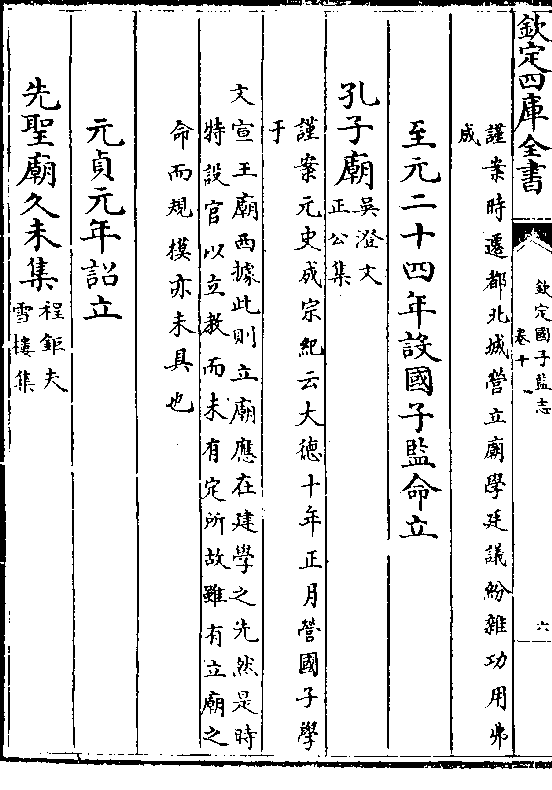 欽定四庫全書
欽定國子監志
卷十
六
謹案時遷都北城營立廟學廷議紛雜功用弗
成
至元二十四年設國子監命立
孔子廟吳澄文
正公集
謹案元史成宗紀云大德十年正月營國子學
于
文宣王廟西據此則立廟應在建學之先然是時
特設官以立教而未有定所故雖有立廟之
命而規模亦未具也
元貞元年詔立
先聖廟久未集程鉅夫
雪樓集